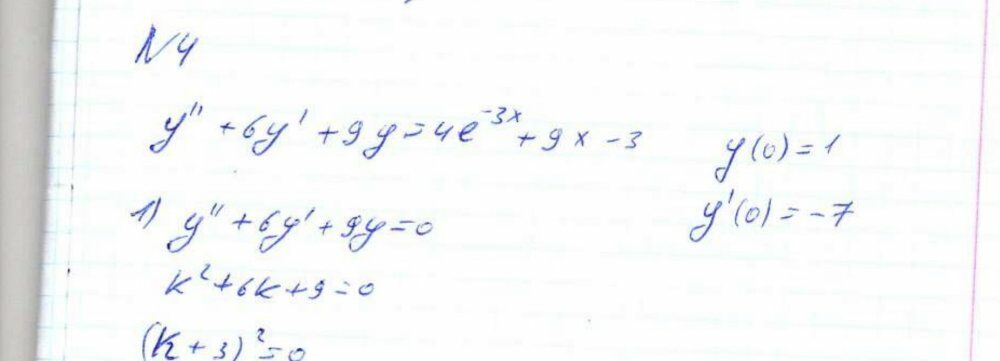 N4
y'' + 6y' + 9y = 4e^{-3x} + 9x - 3
y(0) = 1
1) y'' + 6y' + 9y = 0
y'(0) = -7
k² + 6k + 9 = 0
(k + 3)² = 0